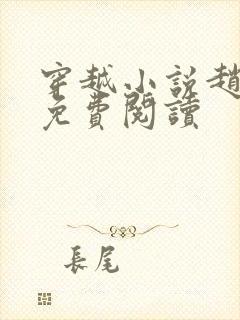 穿越小説趙
免費閱讀
長尾